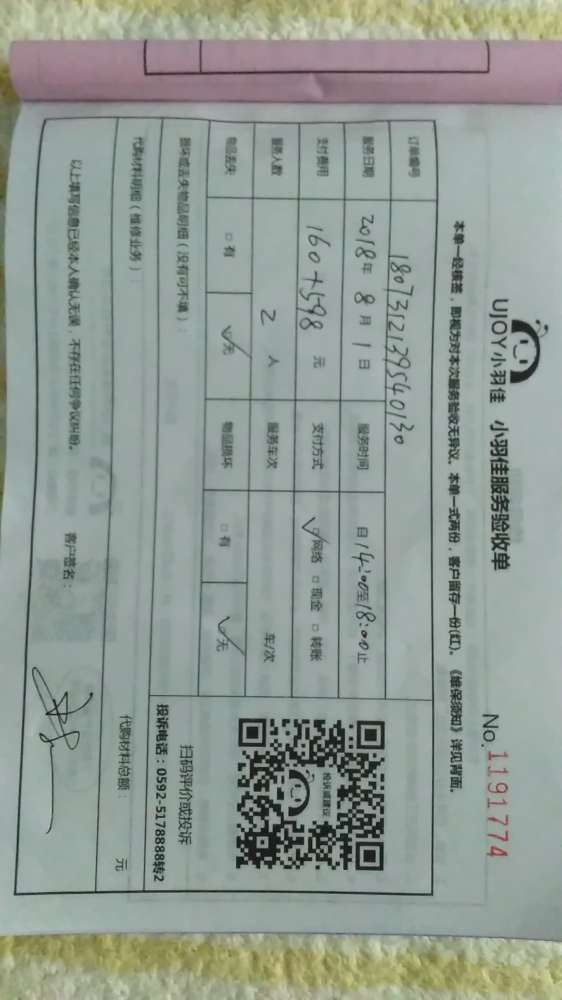 UJOY小羽佳 小羽佳服务验收单
No. 1191774
本单一经核签，即视为对本次服务验收无异议。本单一式两份，客户留存一份(红)。《维保须知》详见背面。
订单编号 1807312139540130
服务日期 2018年 8月 1日 服务时间 自14:00至18:00止
支付费用 160+598 元 支付方式 ☑网络 □现金 □转账
服务人数 2 人 服务车次 车/次
物品丢失 □有 ☑无 物品损坏 □有 ☑无
损坏或丢失物品明细（没有可不填）：
投诉或建议
扫码评价或投诉
投诉电话：0592-5178888转2
代购材料明细（维修业务）： 代购材料总额： 元
以上填写信息已经本人确认无误，不存在任何争议纠纷。 客户签名：